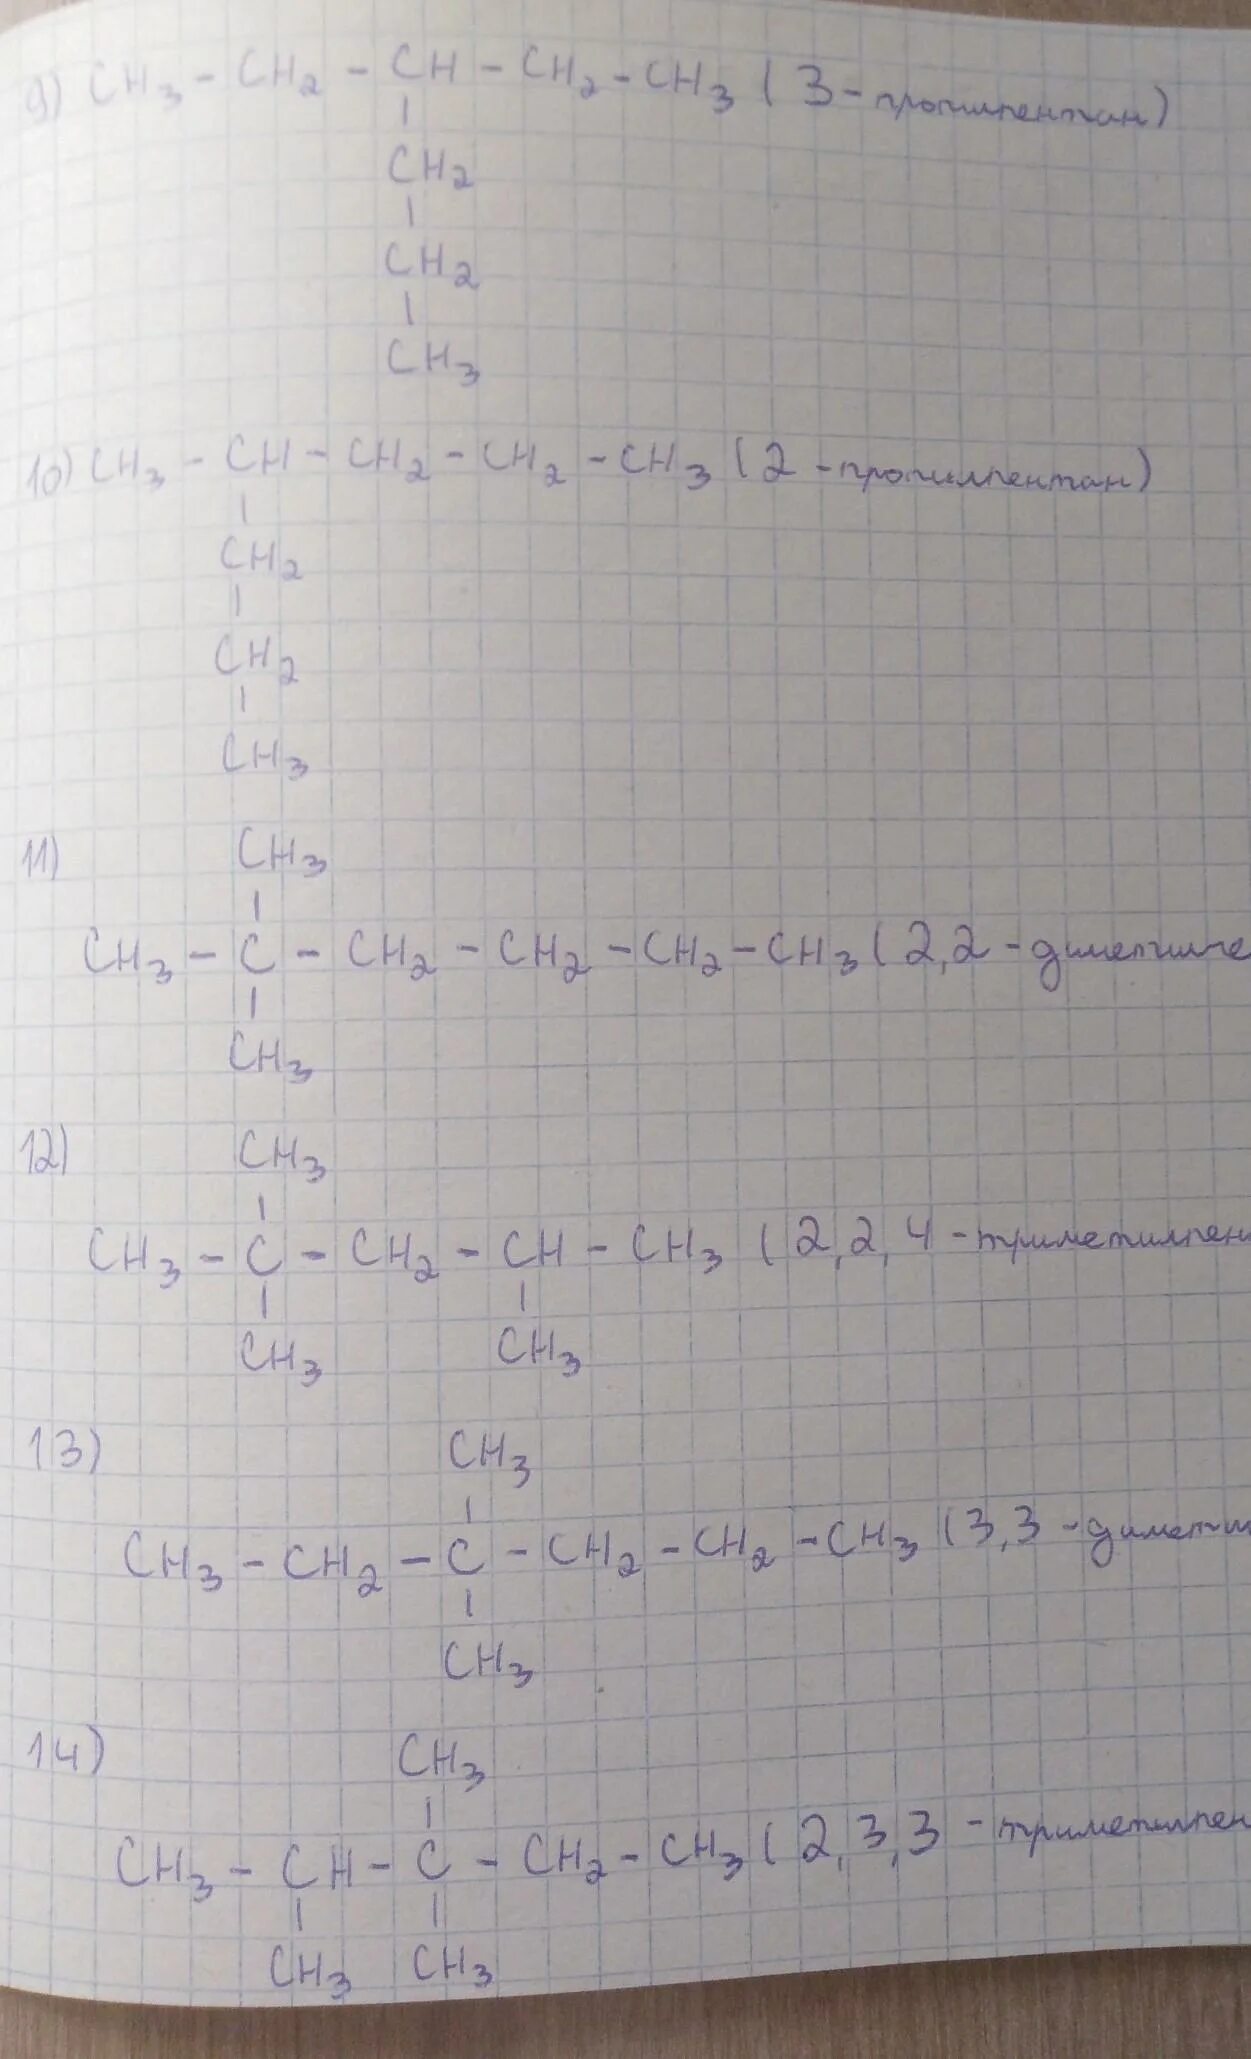 9) CH3 - CH2 - CH - CH2 - CH3 (3-пропилпентан)
CH2
CH2
CH3
10) CH3 - CH - CH2 - CH2 - CH3 (2-пропилпентан)
CH2
CH2
CH3
11) CH3
CH3 - C - CH2 - CH2 - CH2 - CH3 (2,2-диметилге
CH3
12) CH3
CH3 - C - CH2 - CH - CH3 (2,2,4-триметилпен
CH3 CH3
13) CH3
CH3 - CH2 - C - CH2 - CH2 - CH3 (3,3-димети
CH3
14) CH3
CH3 - CH - C - CH2 - CH3 (2,3,3-триметилпен
CH3 CH3